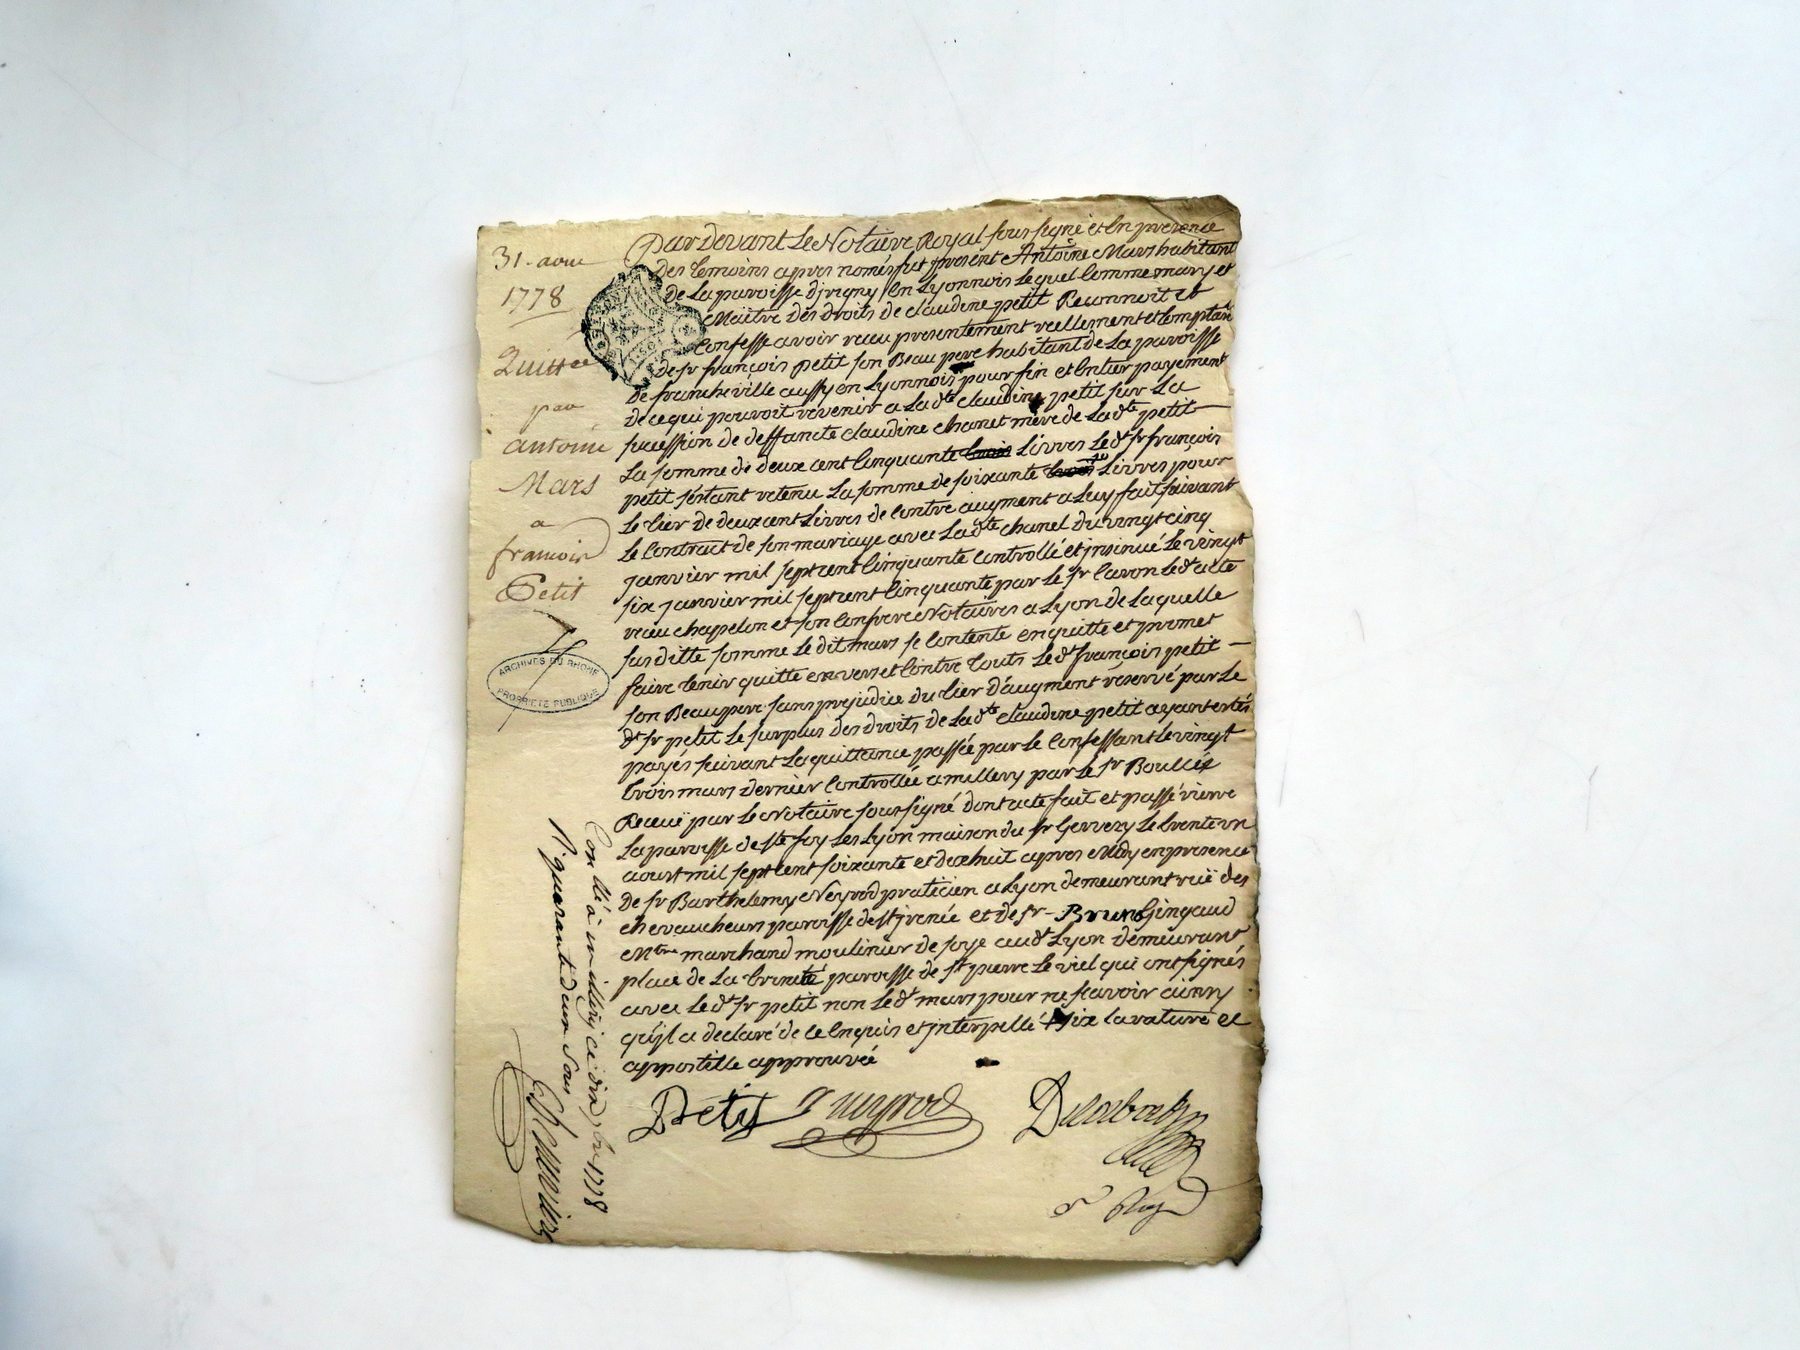 31. aoust
1778
Quittce
par
antoine
Mars
a
francois
Petit
ARCHIVES DU RHONE
PROPRIETE PUBLIQUE
Par devant Le Notaire Royal sous signé et En presence
Des temoins apres només fut present Antoine Mars habitant
de La paroisse d'jrigny En Lyonnois Lequel Comme mary et
Maitre des droits de claudine petit Reconnoit et
Confesse avoir recu presentement reellement et Comptant
de sr françois petit son Beau pere habitant de La paroisse
de francheville aussy en Lyonnois pour fin et Entier payement
de ce qui pouvoit revenir a La dte claudine petit sur La
sucession de deffuncte claudine chanet mère de La dte petit
La somme de deux cent Cinquante Livres Le dt sr françois
petit s'estant retenu La somme de soixante Livres pour
Le tier de deux cent Livres de Contre augment a Luy fait suivant
Le Contract de son mariage avec La dte chanel du vingt cinq
janvier mil sept cent Cinquante controllé et jnsinué Le vingt
six janvier mil sept cent Cinquante par Le sr Caron Le dt acte
recu chapelon et son Confrere Notaires a Lyon de Laquelle
sus ditte somme Le dit mars se Contente en quitte et promet
faire tenir quitte envers et Contre touts Le dt françois petit
son Beau pere sans prejudice du tier d'augment réservé par Le
dt sr petit Le surplus des droits de La dte claudine petit ayant estés
payés suivant La quittance passée par Le Confessant Le vingt
trois mars dernier Controllée a millery par Le sr Boullée
Receue par Le Notaire soussigné dont acte fait et passé riere
La paroisse de ste foy Les Lyon maison du sr Gervezy Le trente un
aoust mil sept cent soixante et dixhuit apres Midy en presence
de sr Barthelemy Neyrod praticien a Lyon demeurant ruë des
chevaucheurs paroisse de st jrenée et de sr Brun Gingaud
Mtre marchand moulinier de soye au dt Lyon demeurant
place de La trinité paroisse de st pierre Le viel qui ont signés
avec Le dt sr petit non Le dt mars pour ne scavoir ainsy
qu'jl a declaré de ce Enquis et jnterpellé La rature et
appostille approuvée
Petit Neyrod
Con llé à millery ce dix 7bre 1778
R. quarante deux sous